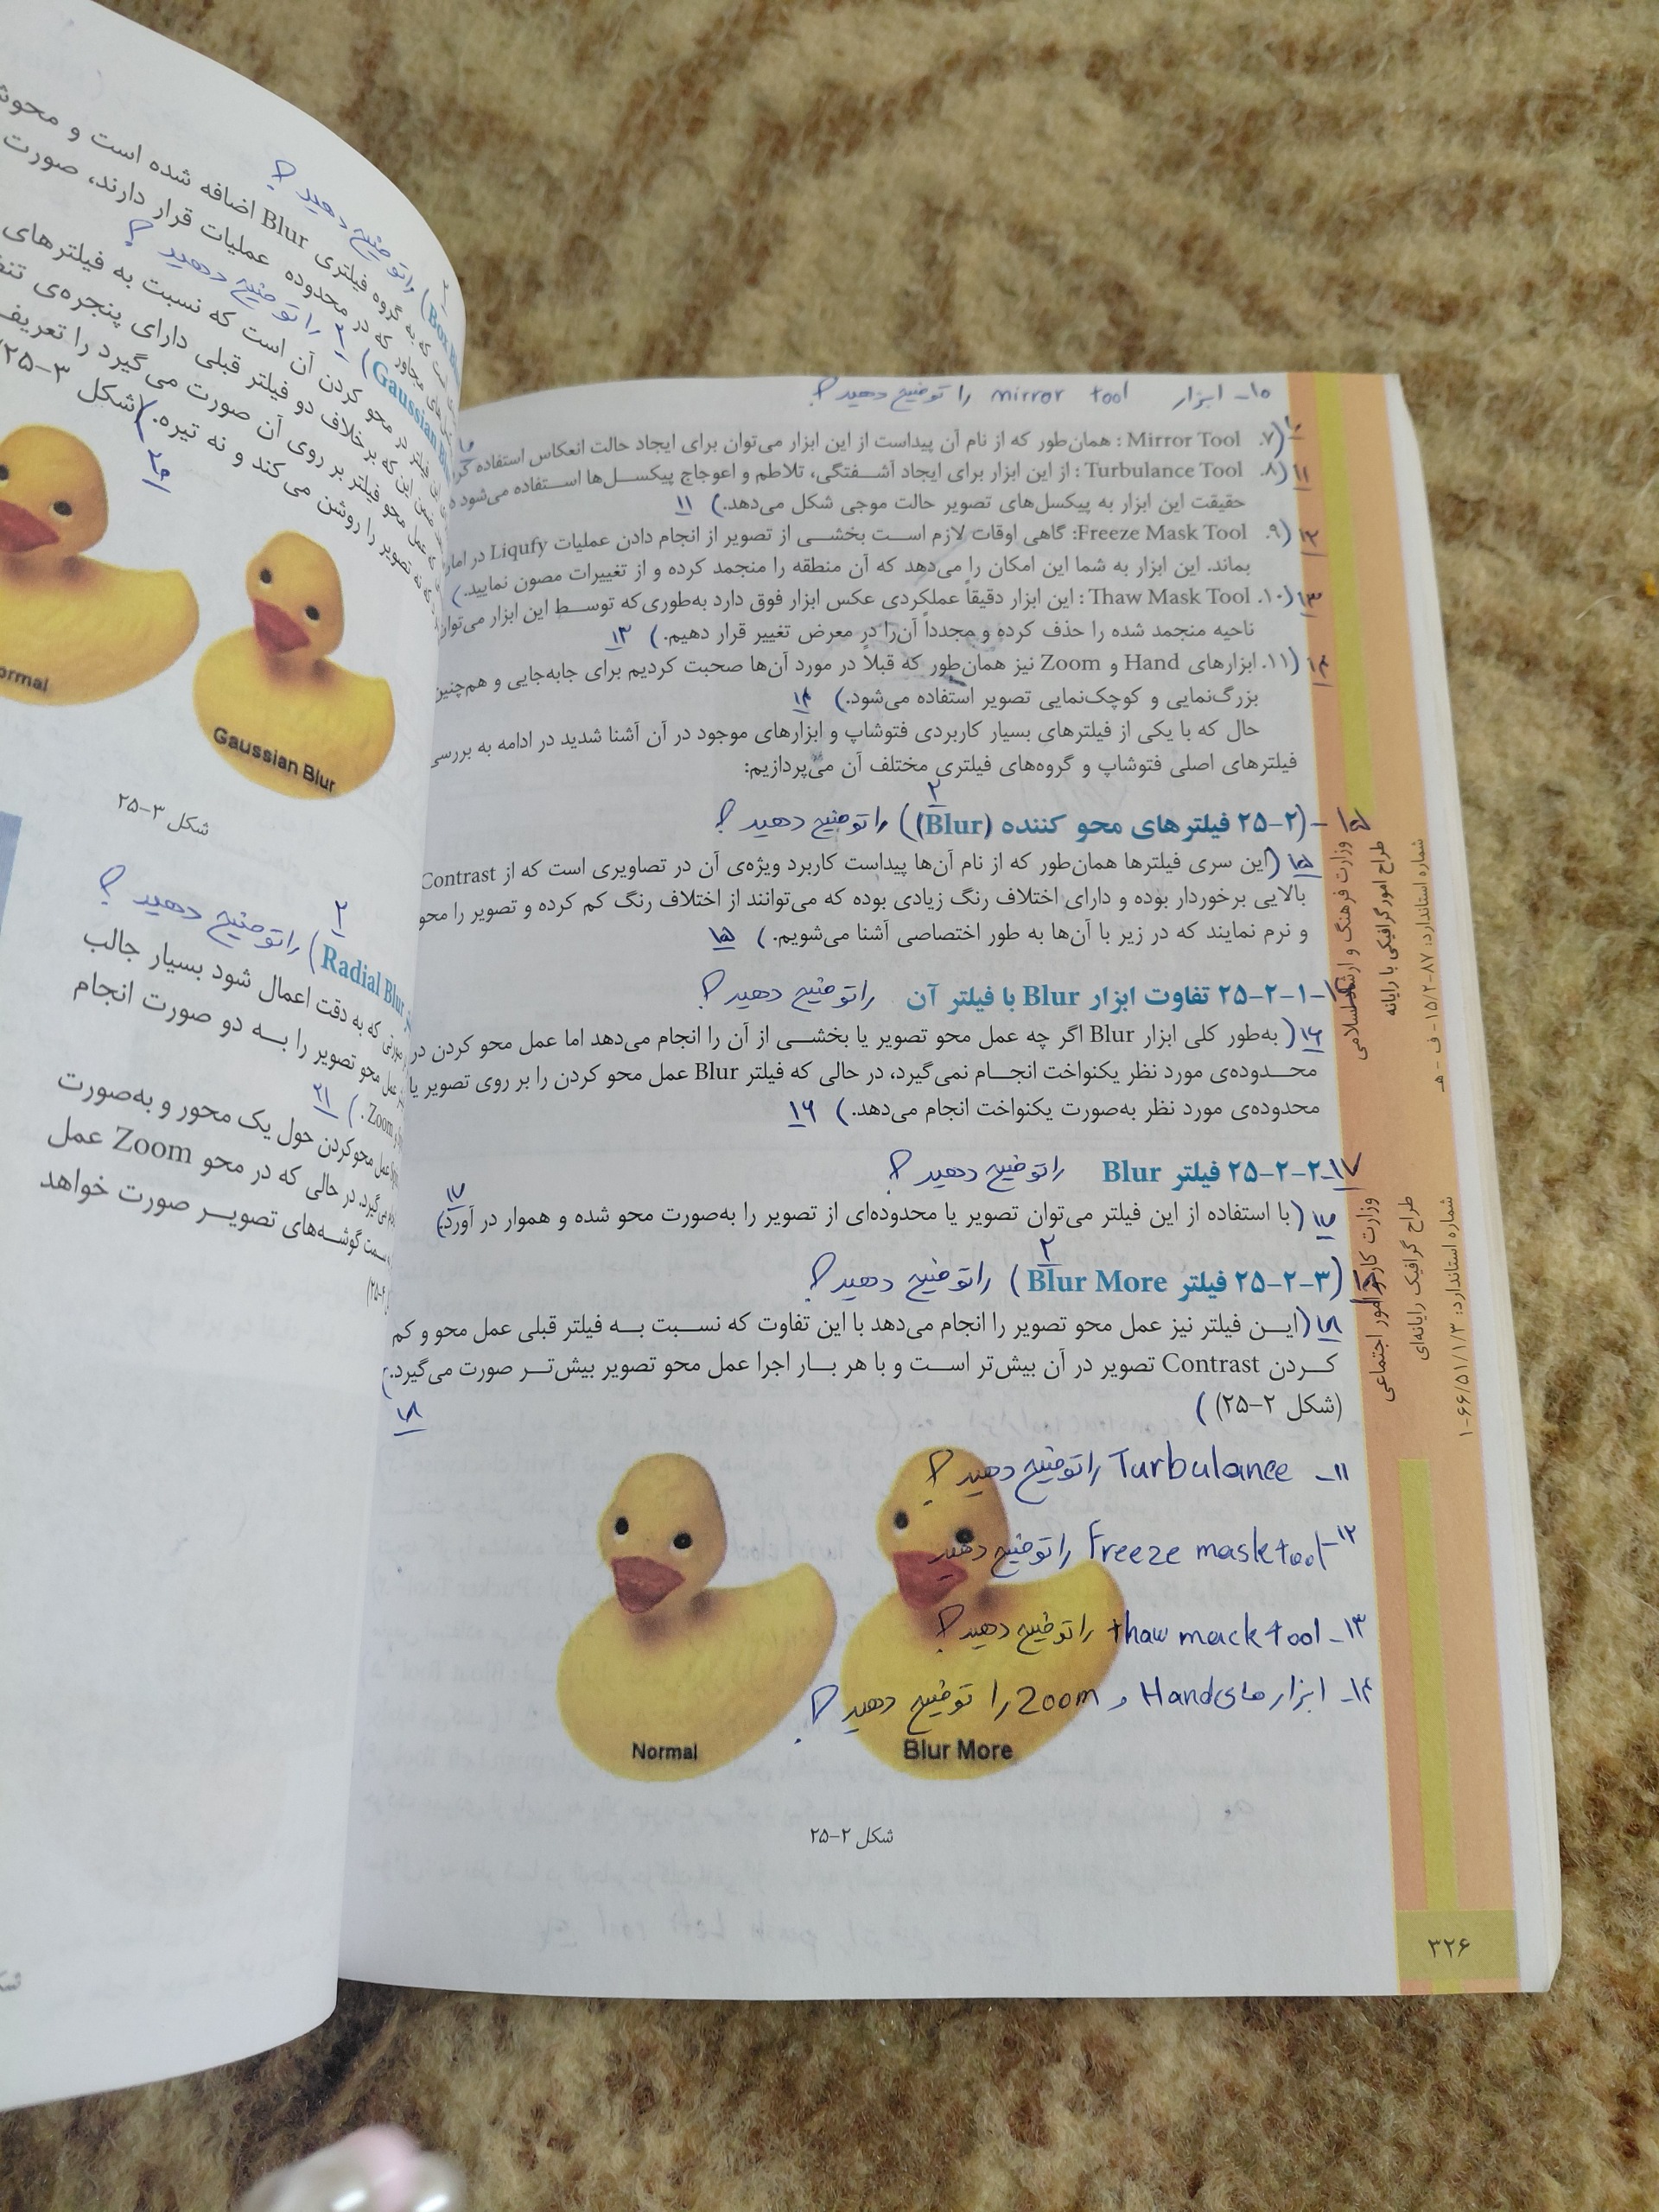 ۱۰- ابزار mirror tool را توضیح دهید؟
۱۰ (۷. Mirror Tool : همان‌طور که از نام آن پیداست از این ابزار می‌توان برای ایجاد حالت انعکاس استفاده
۱۱ (۸. Turbulance Tool : از این ابزار برای ایجاد آشفتگی، تلاطم و اعوجاج پیکسل‌ها استفاده می‌شود
حقیقت این ابزار به پیکسل‌های تصویر حالت موجی شکل می‌دهد.) ۱۱
۱۲ (۹. Freeze Mask Tool: گاهی اوقات لازم است بخشی از تصویر از انجام دادن عملیات Liqufy در امان
بماند. این ابزار به شما این امکان را می‌دهد که آن منطقه را منجمد کرده و از تغییرات مصون نمایید.)
۱۳ (۱۰. Thaw Mask Tool : این ابزار دقیقاً عملکردی عکس ابزار فوق دارد به‌طوری‌که توسط این ابزار می‌توان
ناحیه منجمد شده را حذف کرده و مجدداً آن‌را در معرض تغییر قرار دهیم.) ۱۳
۱۴ (۱۱. ابزارهای Hand و Zoom نیز همان‌طور که قبلاً در مورد آن‌ها صحبت کردیم برای جابه‌جایی و هم‌چنین
بزرگ‌نمایی و کوچک‌نمایی تصویر استفاده می‌شود.) ۱۴
حال که با یکی از فیلترهای بسیار کاربردی فتوشاپ و ابزارهای موجود در آن آشنا شدید در ادامه به بررسی
فیلترهای اصلی فتوشاپ و گروه‌های فیلتری مختلف آن می‌پردازیم:
۱۵- (۲-۲۵ فیلترهای محو کننده (Blur)) ۲ را توضیح دهید؟
۱۵ (این سری فیلترها همان‌طور که از نام آن‌ها پیداست کاربرد ویژه‌ی آن در تصاویری است که از Contrast
بالایی برخوردار بوده و دارای اختلاف رنگ زیادی بوده که می‌توانند از اختلاف رنگ کم کرده و تصویر را محو
و نرم نمایند که در زیر با آن‌ها به طور اختصاصی آشنا می‌شویم.) ۱۵
۱-۲-۲۵ تفاوت ابزار Blur با فیلتر آن را توضیح دهید؟
۱۶ (به‌طور کلی ابزار Blur اگر چه عمل محو تصویر یا بخشی از آن را انجام می‌دهد اما عمل محو کردن در
محدوده‌ی مورد نظر یکنواخت انجام نمی‌گیرد، در حالی که فیلتر Blur عمل محو کردن را بر روی تصویر یا
محدوده‌ی مورد نظر به‌صورت یکنواخت انجام می‌دهد.) ۱۶
۱۷-۲-۲-۲۵ فیلتر Blur را توضیح دهید؟
۱۷ (با استفاده از این فیلتر می‌توان تصویر یا محدوده‌ای از تصویر را به‌صورت محو شده و هموار در آورد.) ۱۷
(۳-۲-۲۵ فیلتر Blur More) ۲ را توضیح دهید؟
۱۸ (این فیلتر نیز عمل محو تصویر را انجام می‌دهد با این تفاوت که نسبت به فیلتر قبلی عمل محو و کم
کردن Contrast تصویر در آن بیش‌تر است و با هر بار اجرا عمل محو تصویر بیش‌تر صورت می‌گیرد.)
(شکل ۲-۲۵) ) ۱۸
۱۱- Turbulance را توضیح دهید؟
۱۲- Freeze mask tool را توضیح دهید
۱۳- thaw mack tool را توضیح دهید؟
۱۴- ابزارهای Hand و Zoom را توضیح دهید؟
Normal
Blur More
شکل ۲-۲۵
۳۲۶
وزارت فرهنگ و ارشاد اسلامی
طراح امور گرافیکی با رایانه
شماره استاندارد: ۸۷-۱۵/۲- ف - هـ
وزارت کار و امور اجتماعی
طراح گرافیک رایانه‌ای
شماره استاندارد: ۱-۶۶/۵۱/۱/۳
را توضیح دهید؟
که به گروه فیلتری Blur اضافه شده است و
مجاور که در محدوده عملیات قرار دارند، صورت
(Gaussian ۲ را توضیح دهید؟
محو کردن آن است که نسبت به فیلترهای
این که برخلاف دو فیلتر قبلی دارای پنجره‌ی
عمل محو فیلتر بر روی آن صورت می‌گیرد را تعریف
تصویر را روشن می‌کند و نه تیره.) (شکل ۳-۲۵
۲۰
Gaussian Blur
شکل ۳-۲۵
Radial Blur) ۲ را توضیح دهید؟
که به دقت اعمال شود بسیار جالب
محو تصویر را به دو صورت انجام
Zoom .) ۲۱
عمل محو کردن حول یک محور و به‌صورت
می‌گیرد، در حالی که در محو Zoom عمل
سمت گوشه‌های تصویر صورت خواهد